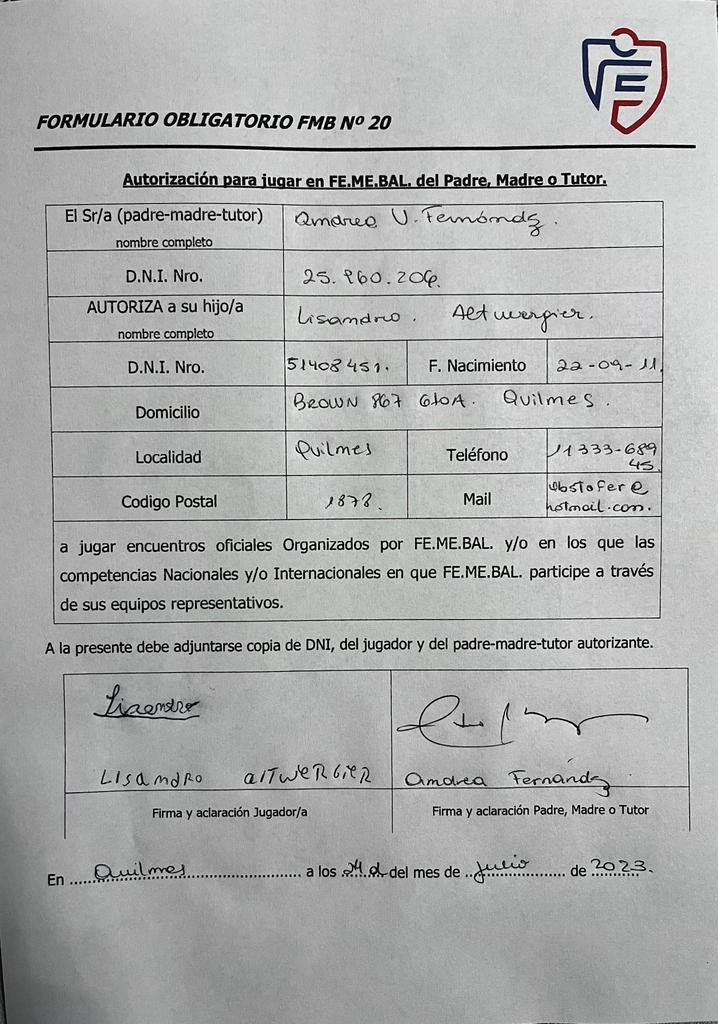 FORMULARIO OBLIGATORIO FMB Nº 20
Autorización para jugar en FE.ME.BAL. del Padre, Madre o Tutor.
El Sr/a (padre-madre-tutor)
nombre completo
Andrea V. Fernández.
D.N.I. Nro.
25.960.206.
AUTORIZA a su hijo/a
nombre completo
Lisandro. Altwergier.
D.N.I. Nro.
51408451.
F. Nacimiento
22-09-11
Domicilio
BROWN 867 610A. Quilmes.
Localidad
Quilmes
Teléfono
11333-689
45.
Codigo Postal
1878.
Mail
hotmail.com.
a jugar encuentros oficiales Organizados por FE.ME.BAL. y/o en los que las
competencias Nacionales y/o Internacionales en que FE.ME.BAL. participe a través
de sus equipos representativos.
A la presente debe adjuntarse copia de DNI, del jugador y del padre-madre-tutor autorizante.
Lisandro
LISANDRO AlTWERGIER
Andrea Fernández
Firma y aclaración Jugador/a
Firma y aclaración Padre, Madre o Tutor
En Quilmes a los 24 d del mes de Julio de 2023.